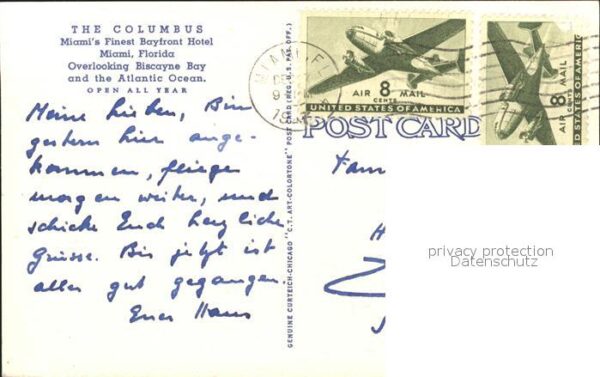 THE COLUMBUS
Miami's Finest Bayfront Hotel
Miami, Florida
Overlooking Biscayne Bay
and the Atlantic Ocean.
OPEN ALL YEAR
Meine Lieben, Bin
gestern hier ange-
kommen, fliege
morgen weiter, und
schicke Euch herzliche
Grüsse. Bis jetzt ist
alles gut gegangen.
Euer Hans
GENUINE CURTEICH-CHICAGO "C.T. ART-COLORTONE" POST CARD (REG. U. S. PAT. OFF.)
MIAMI, FL
AIR 8 MAIL
CENTS
UNITED STATES OF AMERICA
AIR 8 MAIL
CENTS
UNITED STATES OF AMERICA
POST CARD
Fam
privacy protection
Datenschutz